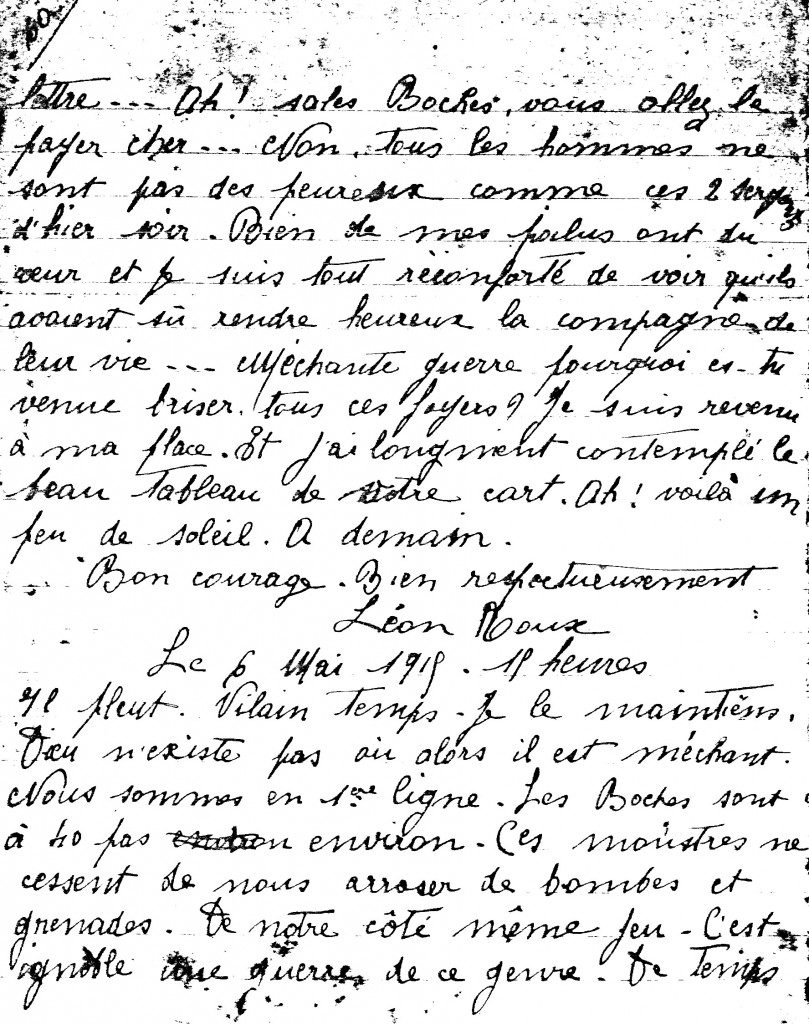 60
lettre --- Ah! sales Boches, vous allez le
payer cher --- Non, tous les hommes ne
sont pas des peureux comme ces 2 sergents
d'hier soir. Bien de mes poilus ont du
cœur et je suis tout réconforté de voir qu'ils
avaient sû rendre heureux la compagne de
leur vie --- Méchante guerre pourquoi es-tu
venue briser tous ces foyers? Je suis revenu
à ma place. Et j'ai longment contemplé le
beau tableau de votre cart. Ah! voilà un
peu de soleil. A demain.
Bon courage. Bien respectueusement
Léon Roux
Le 6 Mai 1915. 15 heures
Il pleut. Vilain temps. Je le maintiens.
Dieu n'existe pas où alors il est méchant.
Nous sommes en 1ère ligne. Les Boches sont
à 40 pas environ. Ces monstres ne
cessent de nous arroser de bombes et
grenades. De notre côté même jeu - C'est
ignoble une guerre de ce genre. De temps